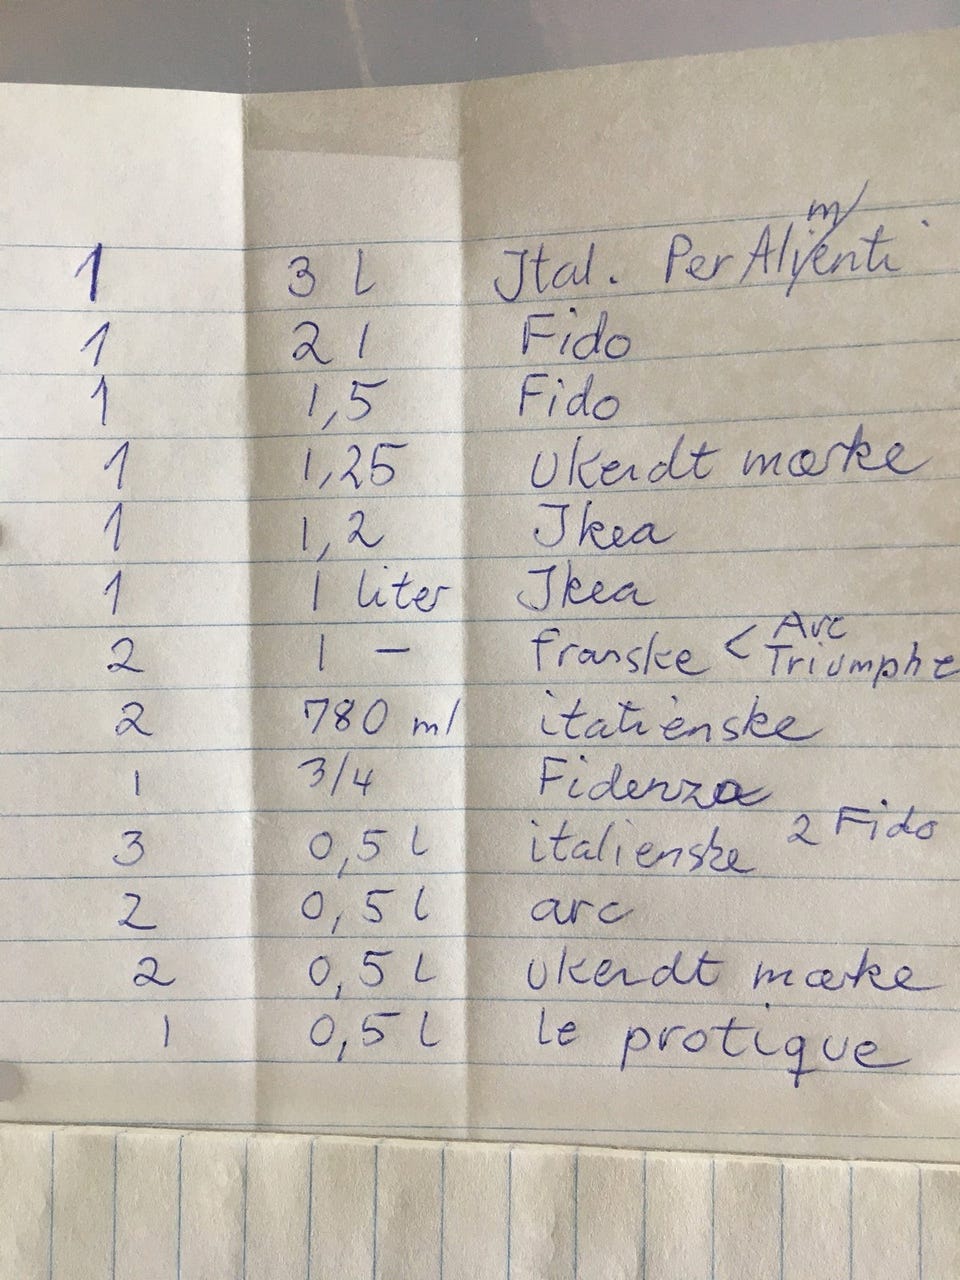 1 3 l Ital. Per Alimenti
1 2 l Fido
1 1,5 Fido
1 1,25 Ukendt mærke
1 1,2 Ikea
1 1 liter Ikea
2 1 — franske < Arc Triumphe
2 780 ml italienske
1 3/4 Fidenza
3 0,5 l italienske 2 Fido
2 0,5 l arc
2 0,5 l ukendt mærke
1 0,5 l le protique